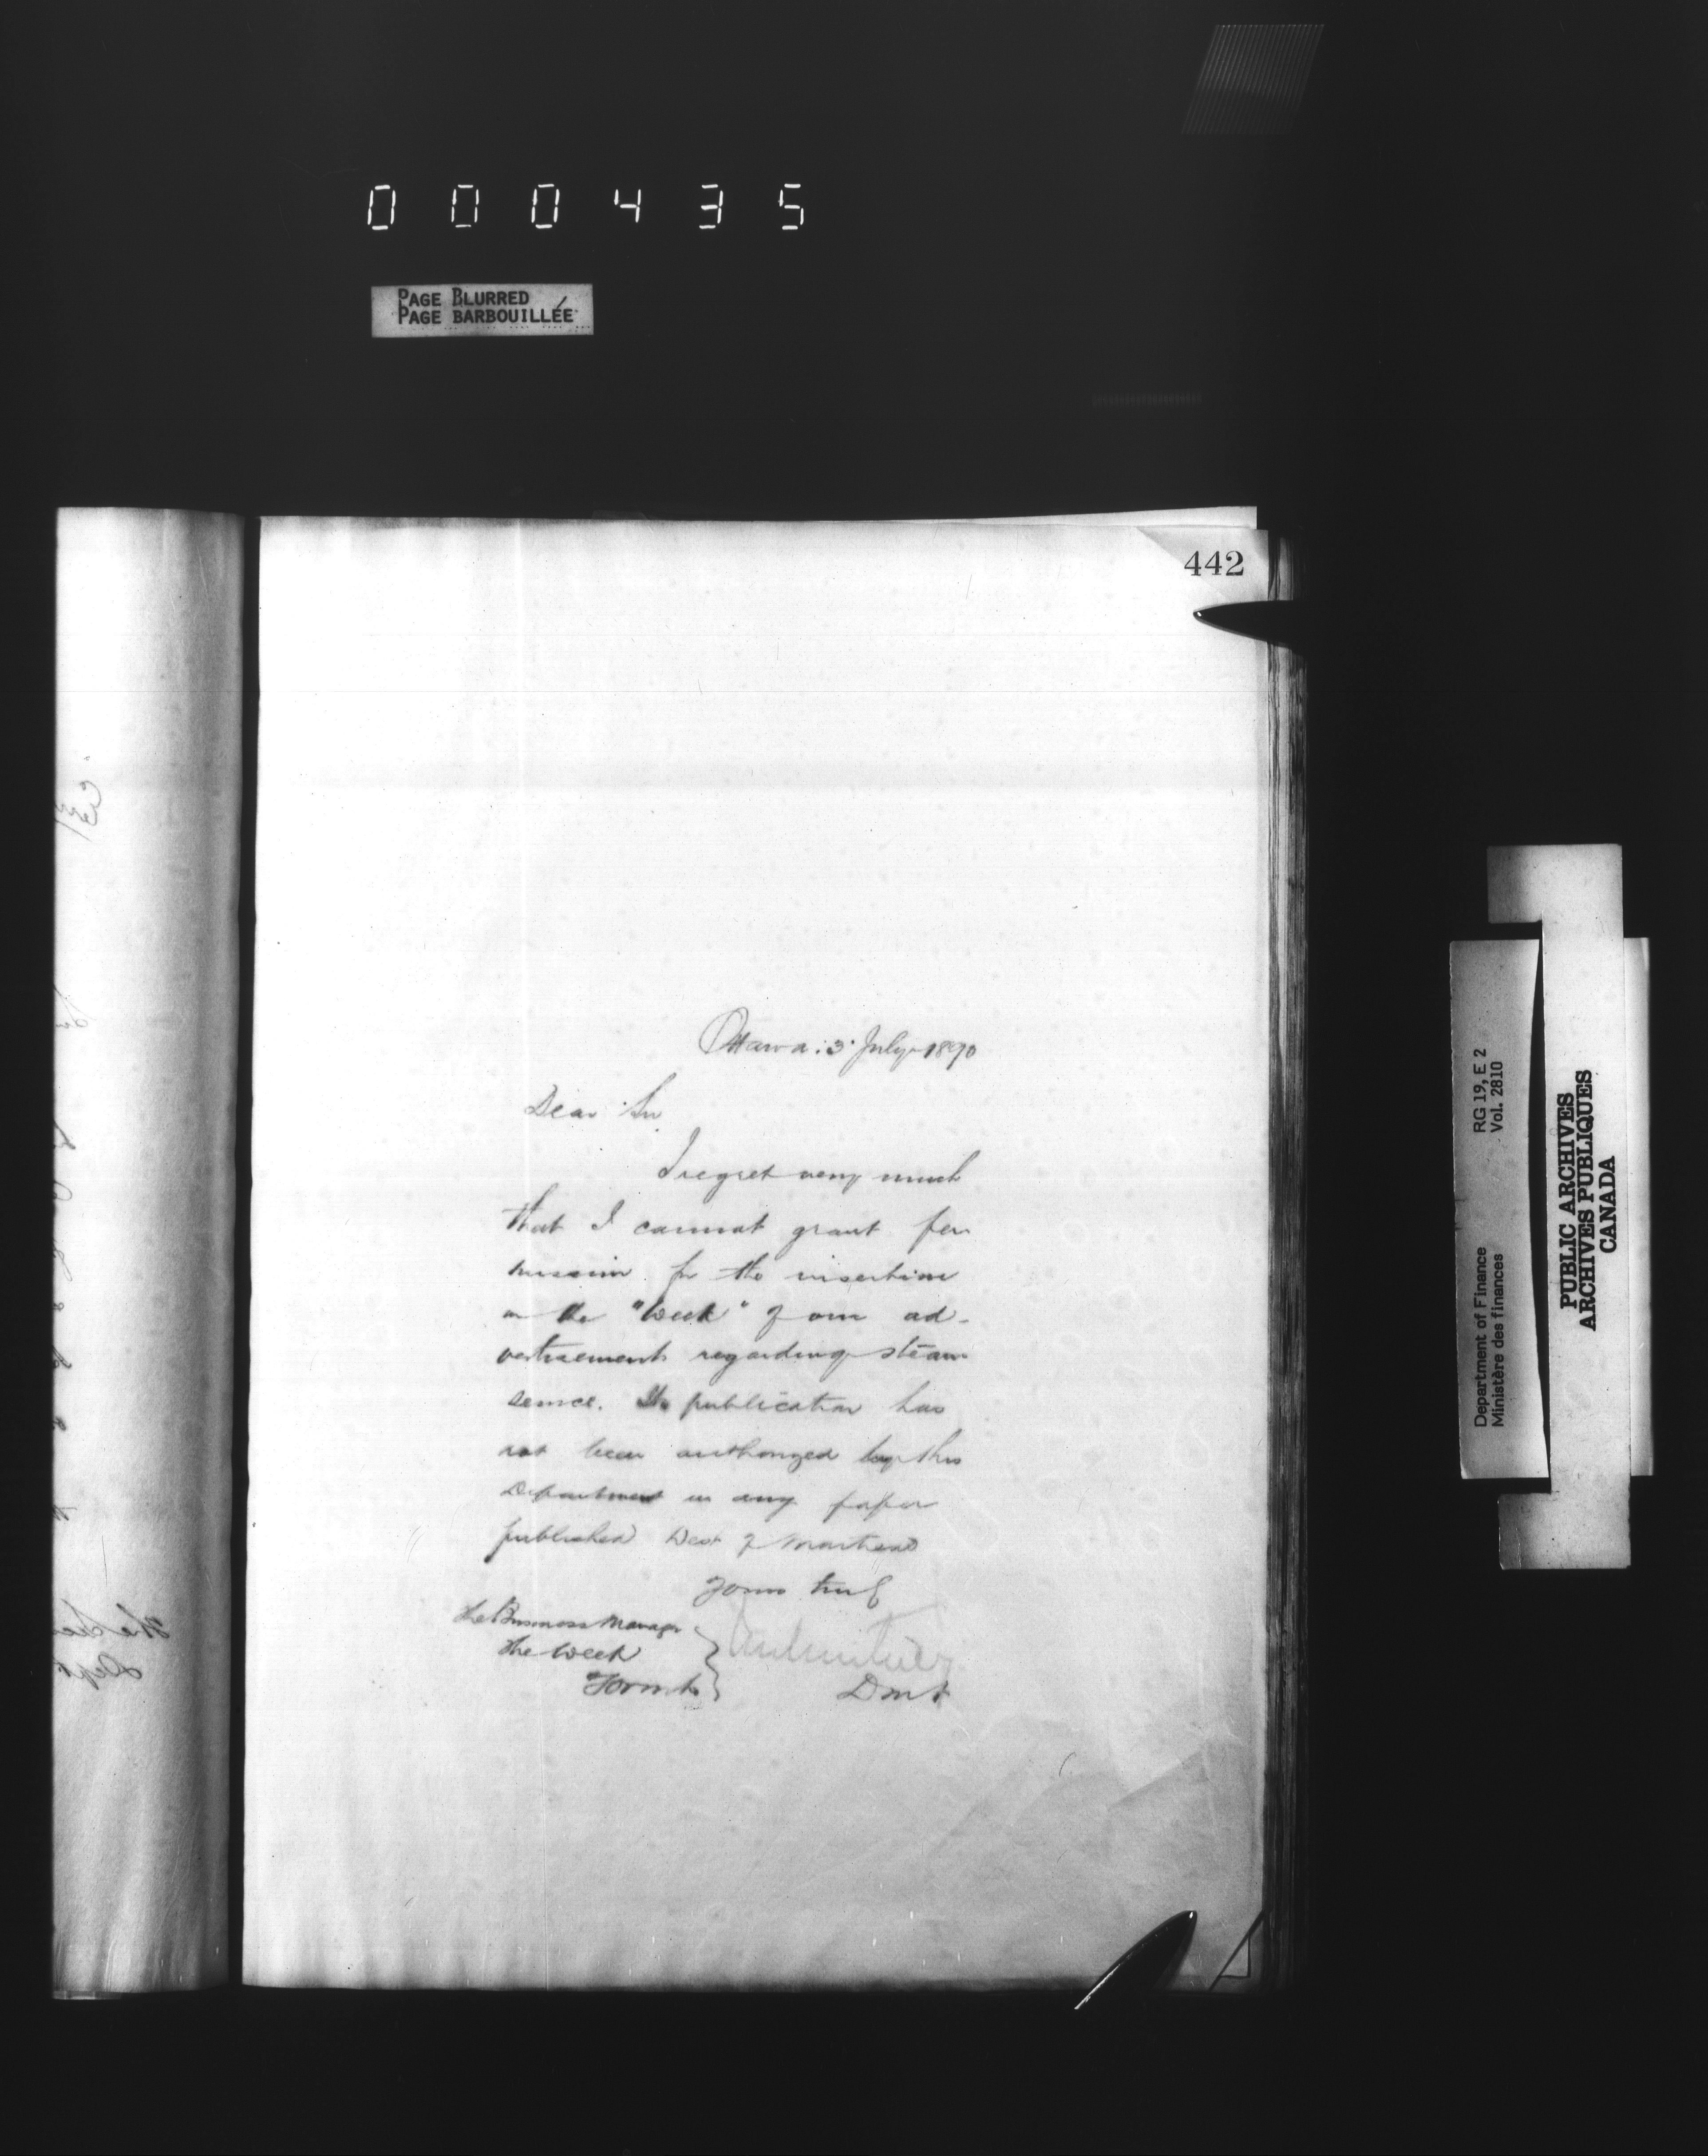 000435
PAGE BLURRED
PAGE BARBOUILLÉE
442
Ottawa: 3 July 1890
Dear Sir
I regret very much
that I cannot grant per
mission for the insertion
in the "Week" of our ad-
vertisements regarding steam
service. Its publication has
not been authorized by this
Department in any paper
published West of Montreal
Yours truly
The Business Manager
The Week
Toronto
D M F
The
Dept
Department of Finance
Ministère des finances
RG 19, E 2
Vol. 2810
PUBLIC ARCHIVES
ARCHIVES PUBLIQUES
CANADA